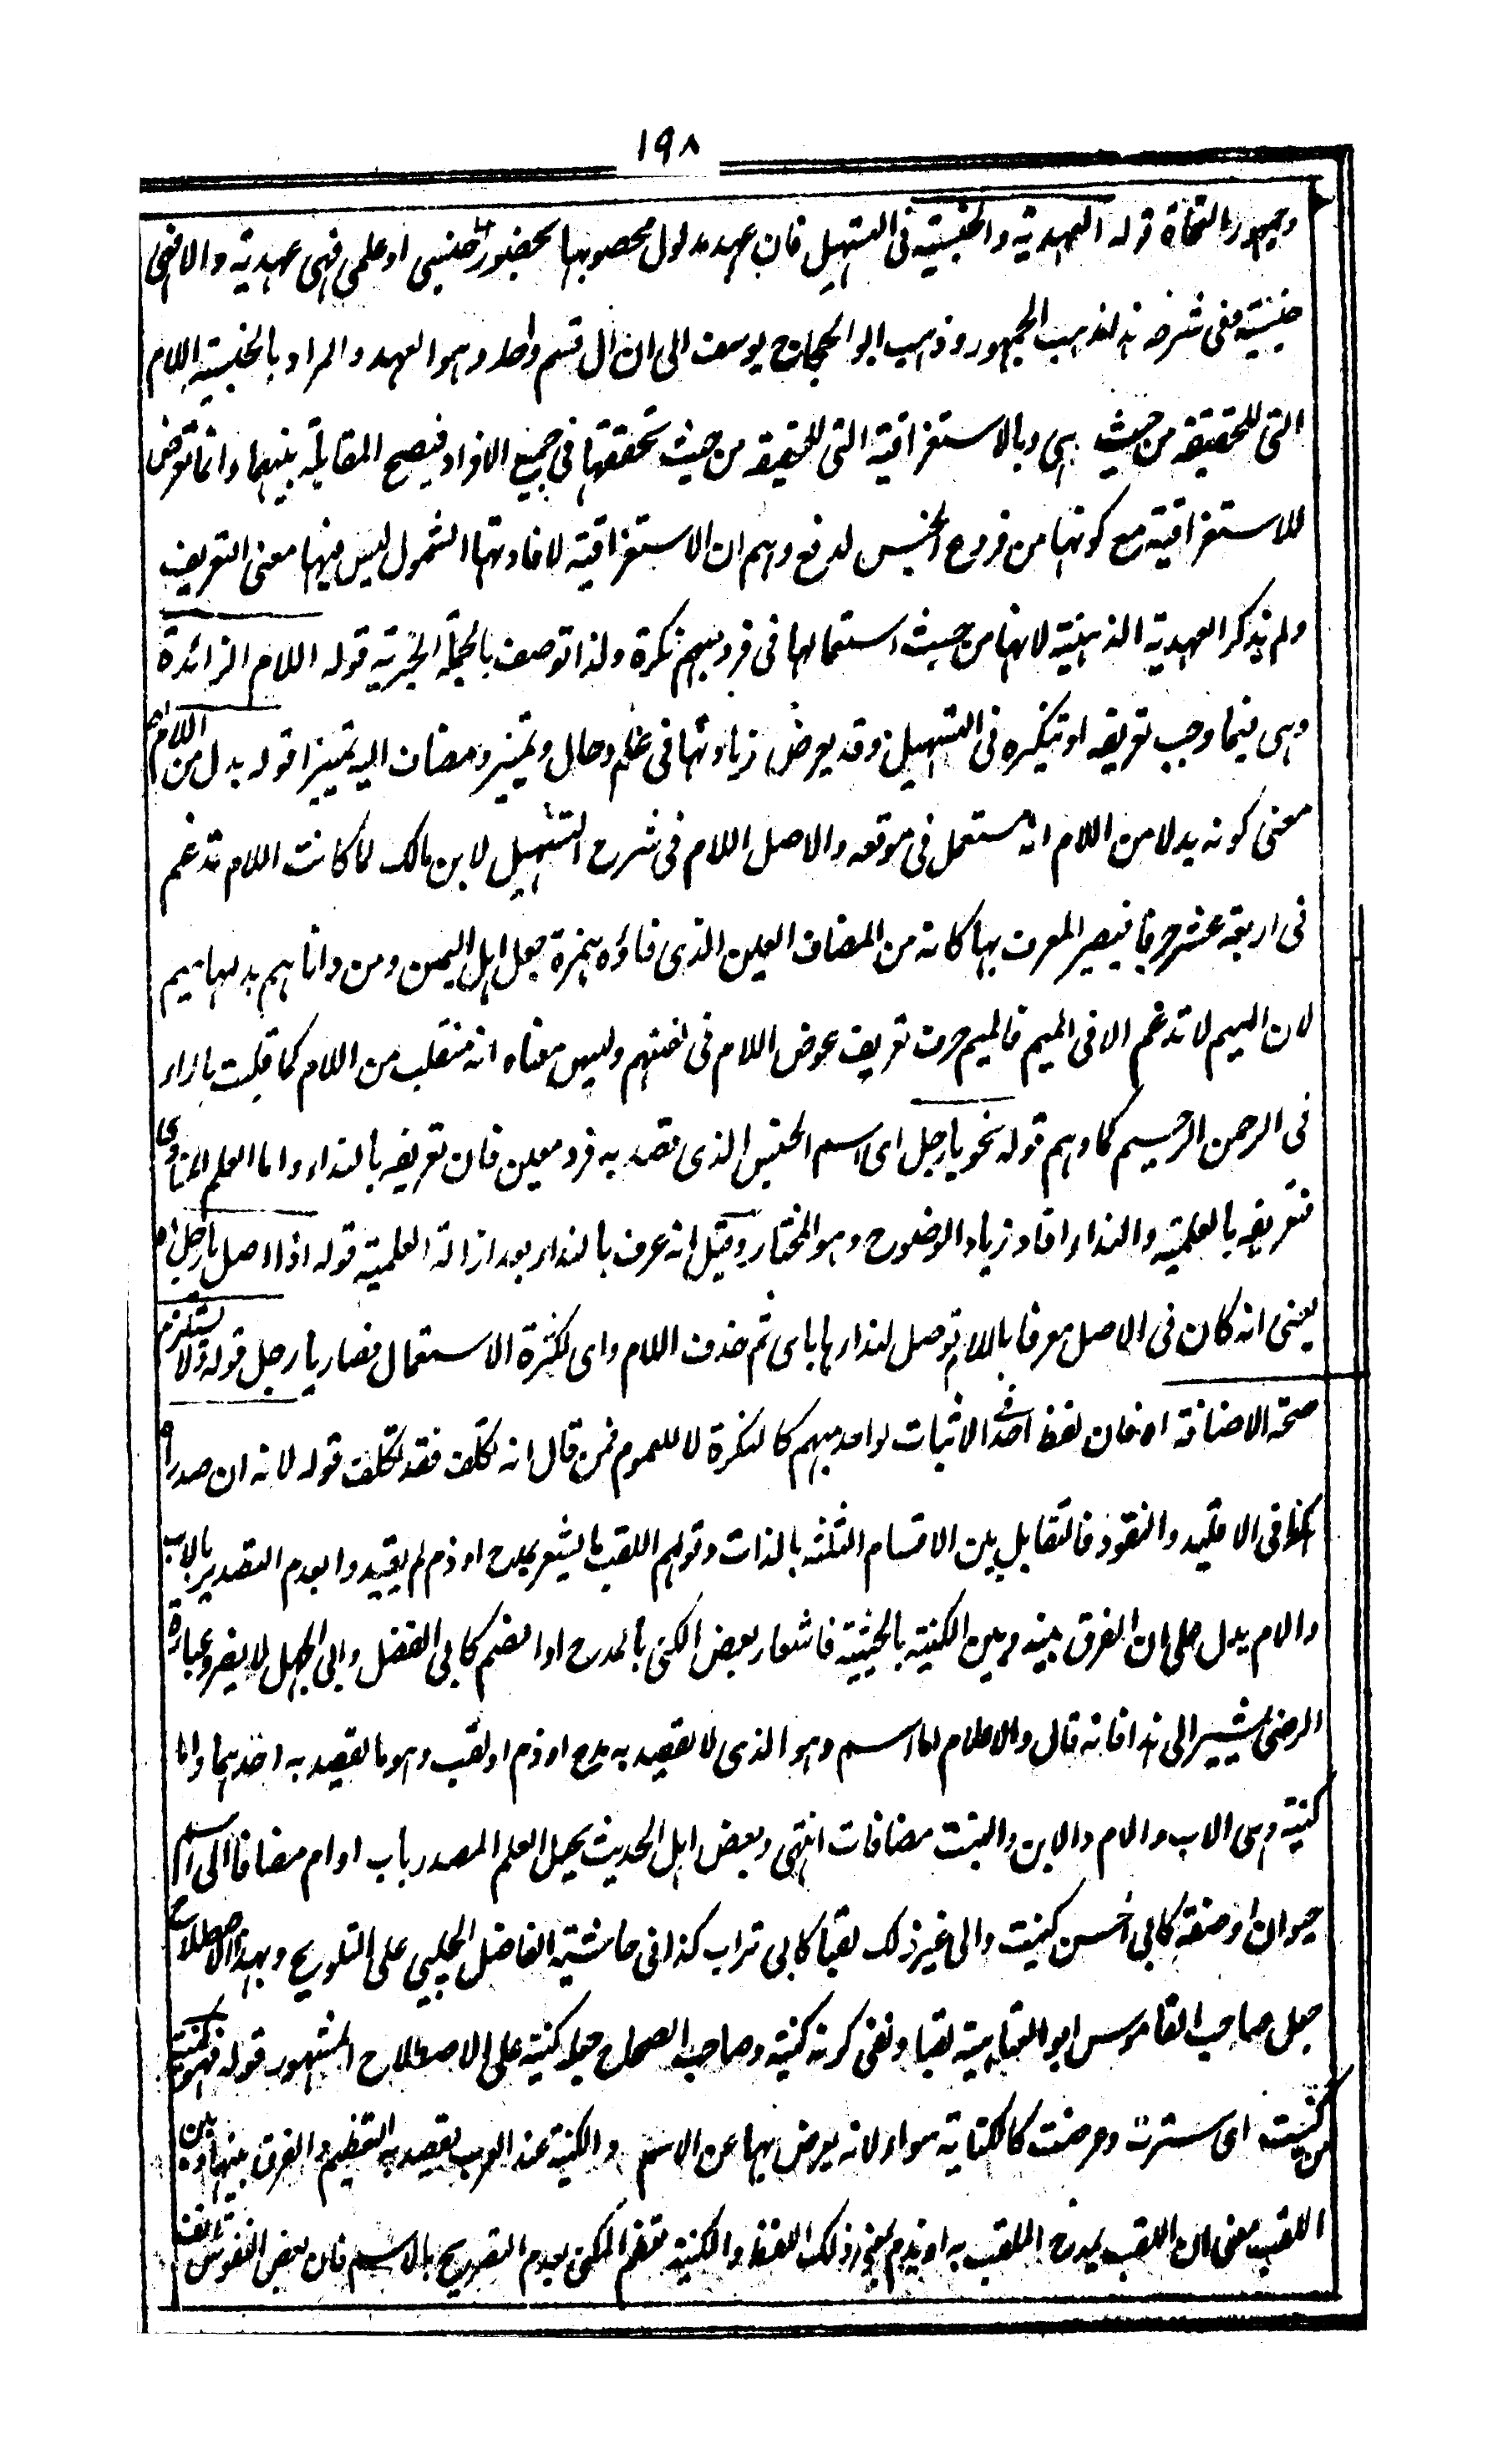 ١٩٨
وجمهور النحاة قوله العهدية والجنسية فى التسهيل فان عهد مدلول مصحوبها بحضور حسى او علمى فهى عهدية والا فهى
جنسية ففى شرحه هذا مذهب الجمهور وذهب ابو الحجاج يوسف الى ان ال قسم واحد وهو العهد والمراد بالجنسية اللام
التى للحقيقة من حيث هى وبالاستغراقية التى للحقيقة من حيث تحققها فى جميع الافراد فيصح المقابلة بينهما وانما تعرض
للاستغراقية مع كونها من فروع الجنس لدفع وهم ان الاستغراقية لافادتها الشمول ليس فيها معنى التعريف
ولم يذكر العهدية الذهنية لانها من حيث استعمالها فى فرد مبهم نكرة ولذا توصف بالجملة الخبرية قوله اللام الزائدة
وهى فيما وجب تعريفه او تنكيره فى التسهيل وقد يعرض زيادتها فى علم وحال وتميز ومضاف اليه تميزا قوله بدل من اللام اه
معنى كونه بدلا من اللام انه مستعمل فى موقعه والاصل اللام فى شرح التسهيل لابن مالك لما كانت اللام تدغم
فى اربعة عشر حرفا فيصير المعرف بها كانه من المضاف العين الذى فاؤه همزة جعل اهل اليمن ومن داناهم بدلها ميم
لان الميم لا تدغم الا فى الميم فالميم حرف تعريف عوض اللام فى لغتهم وليس معناه انه منقلب من اللام كما قلبت بالراء
فى الرحمن الرحيم كما وهم قوله نحو يا رجل اى اسم الجنس الذى قصد به فرد معين فان تعريفه بالنداء واما العلم المنادى
فتعريفه بالعلمية والنداء افاد زيادة الوضوح وهو المختار وقيل انه عرف بالنداء بعد ازالة العلمية قوله اذا اصل يا رجل اه
يعنى انه كان فى الاصل معرفا باللام توصل لنداءها باى ثم حذف اللام واى لكثرة الاستعمال فصار يا رجل قوله ولا يستلزم
صحة الاضافة اه فان لفظ احد فى الاثبات لواحد مبهم كالنكرة لا للعموم فمن قال انه تكلف فقد تكلف قوله لانه ان صدر اه
كذا فى الاقليد والنقود فالتقابل بين الاقسام الثلثة بالذات وقولهم اللقب ما يشعر بمدح او ذم لم يقيدوا بعدم التصدير بالاب
والام يدل على ان الفرق بينه وبين الكنية بالحيثية فاشعار بعض الكنى بالمدح او الذم كابى الفضل وابى الجهل لا يضر وعبارة
الرضى يشير الى هذا فانه قال والاعلام اما اسم وهو الذى لا يقصد به مدح او ذم او لقب وهو ما يقصد به احدهما واما
كنية وهى الاب والام والابن والبنت مضافات انتهى وبعض اهل الحديث يجعل العلم المصدر باب او ام مضافا الى اسم
حيوان او صفة كابى الحسن كنية والى غير ذلك لقبا كابى تراب كذا فى حاشية الفاضل الچلپى على التلويح وبهذا الاصطلاح
جعل صاحب القاموس ابو العتاهية لقبا ونفى كونه كنية وصاحب الصحاح جعله كنية على الاصطلاح المشهور قوله فهو كنية
من كنيت اى سترت وعرضت كالكناية سواء لانه يعرض بها عن الاسم والكنية عند العرب يقصد به التعظيم والفرق بينها وبين
اللقب معنى ان اللقب يمدح الملقب به او يذم بمعنى ذلك اللفظ والكنية تعظم المكنى بعدم التصريح بالاسم فان بعض النفوس تأنف